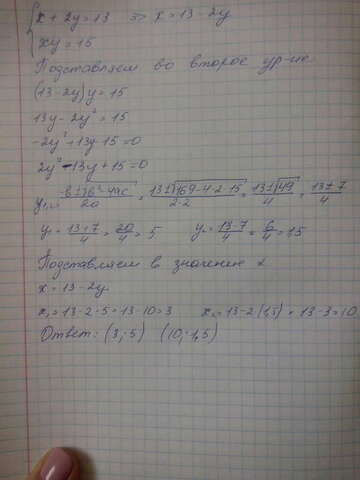 x + 2y = 13 => x = 13 - 2y
xy = 15
Подставляем во второе ур-ие
(13 - 2y)y = 15
13y - 2y² = 15
-2y² + 13y - 15 = 0
2y² - 13y + 15 = 0
y₁,₂ = -b±√b²-4ac/2a = 13±√169-4·2·15/2·2 = 13±√49/4 = 13±7/4
y₁ = 13+7/4 = 20/4 = 5 y₂ = 13-7/4 = 6/4 = 15
Подставляем в значение x
x = 13 - 2y
x₁ = 13 - 2·5 = 13-10 = 3 x₂ = 13-2(1,5) = 13-3 = 10
Ответ: (3; 5) (10; 1,5)